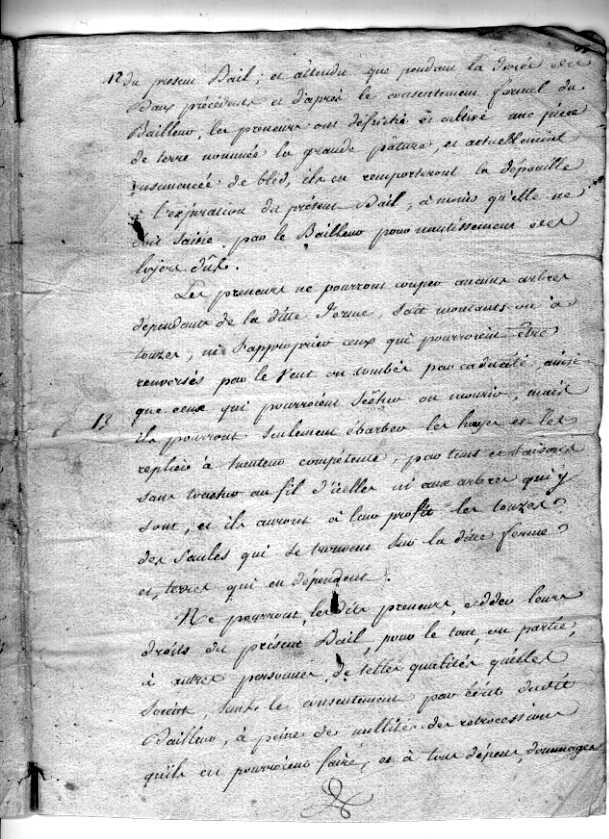 12 du present Bail; et attendu que pendant la durée des
Baux précédents et d'après le consentement formel du
Bailleur, les preneurs ont défriché et cultivé une pièce
de terre nommée la grande pâture, et actuellement
ensemencée de bled, ils en remporteront la dépouille
à l'expiration du présent Bail, à moins qu'elle ne
soit saisie par le Bailleur pour nantissement des
loyers dûs.
Les preneurs ne pourront couper aucuns arbres
dépendants de la ditte ferme, soit montants ou à
touzer, ni s'approprier ceux qui pourroient être
renversés par le Vent ou tombés par caducité, ainsi
13 que ceux qui pourroient sécher ou mourir, mais
ils pourront seulement ébarber les hayes et les
replier à hauteur compétente, par tems et saisons
sans toucher au fil d'icelles ni aux arbres qui y
sont, et ils auront à leur profit les touzes
des Saules qui se trouvent sur la dite ferme
et terres qui en dépendent.
Ne pourront, les dits preneurs, céder leurs
droits du présent Bail, pour le tout, ou partie,
à autres personnes, de telles qualités qu'elles
soient, sans le consentement par écrit dudit
Bailleur, à peine de nullité des retrocessions
qu'ils en pourroient faire, et à tous dépens, dommages